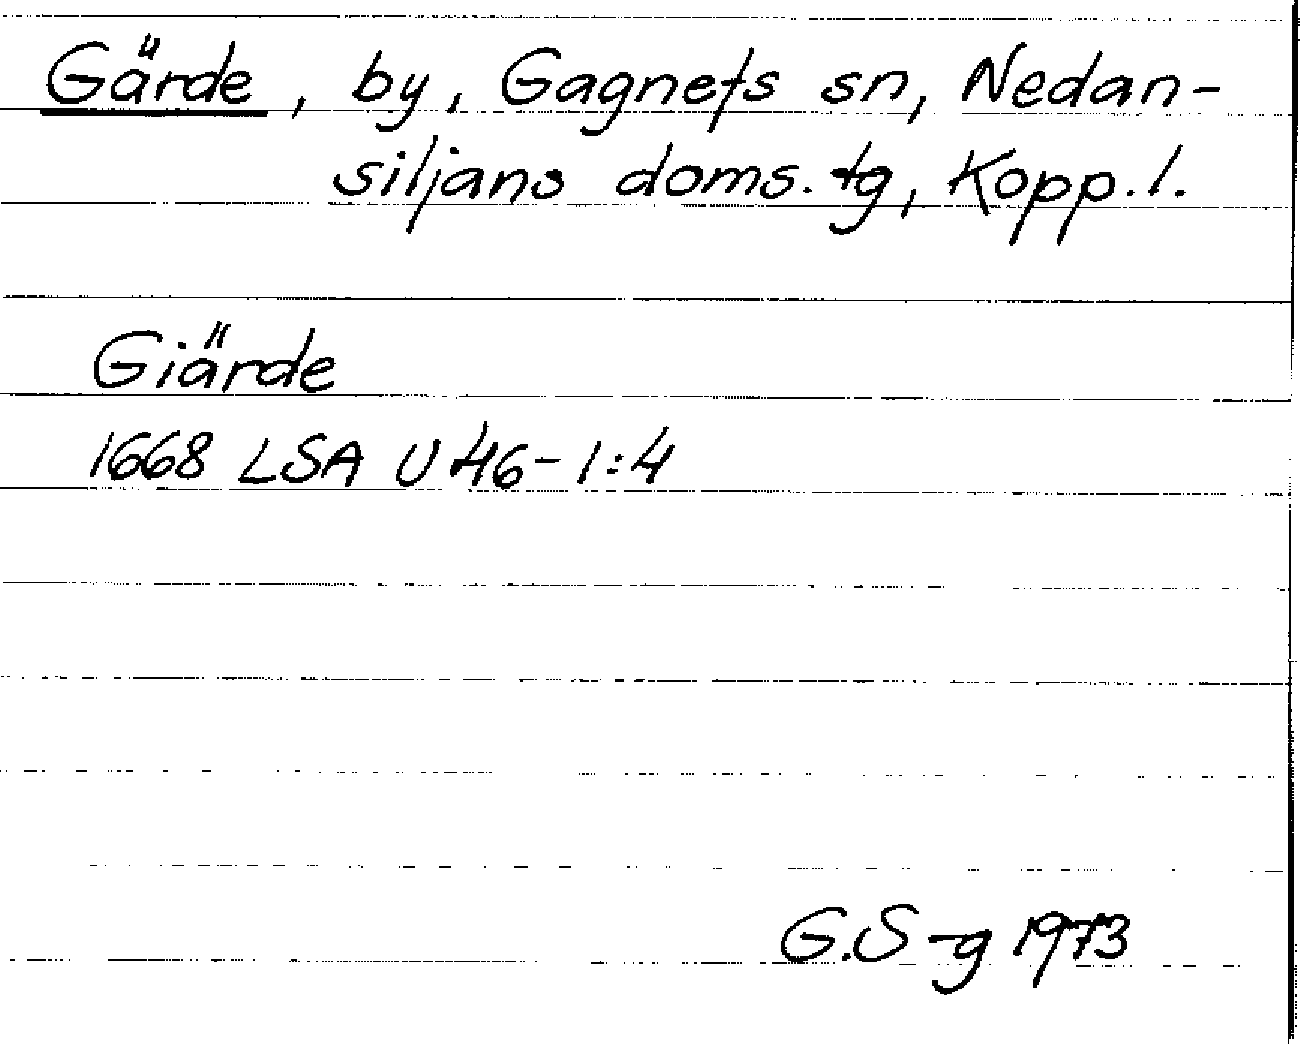 Gärde, by, Gagnefs sn, Nedan-
siljans doms. tg, Kopp. l.
Giärde
1668 LSA U 46-1:4
G.S-g 1973